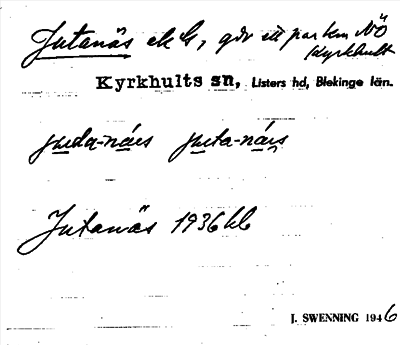 Jutanäs ek h, går ett par km NÖ
Kyrkhult
Kyrkhults sn, Listers hd, Blekinge län.
juda-näs juta-näs
Jutanäs 1936 kb
J. SWENNING 1946